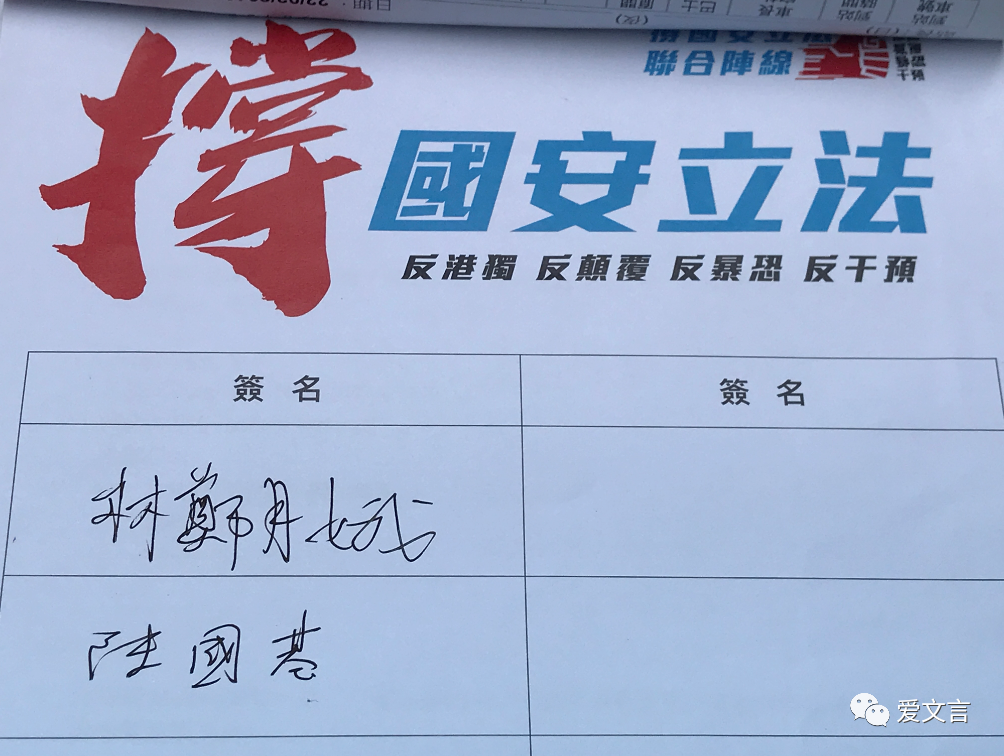 撐國安立法
聯合陣線
撐
國安立法
反港獨 反顛覆 反暴恐 反干預
簽名
簽名
林鄭月娥
陳國基
爱文言